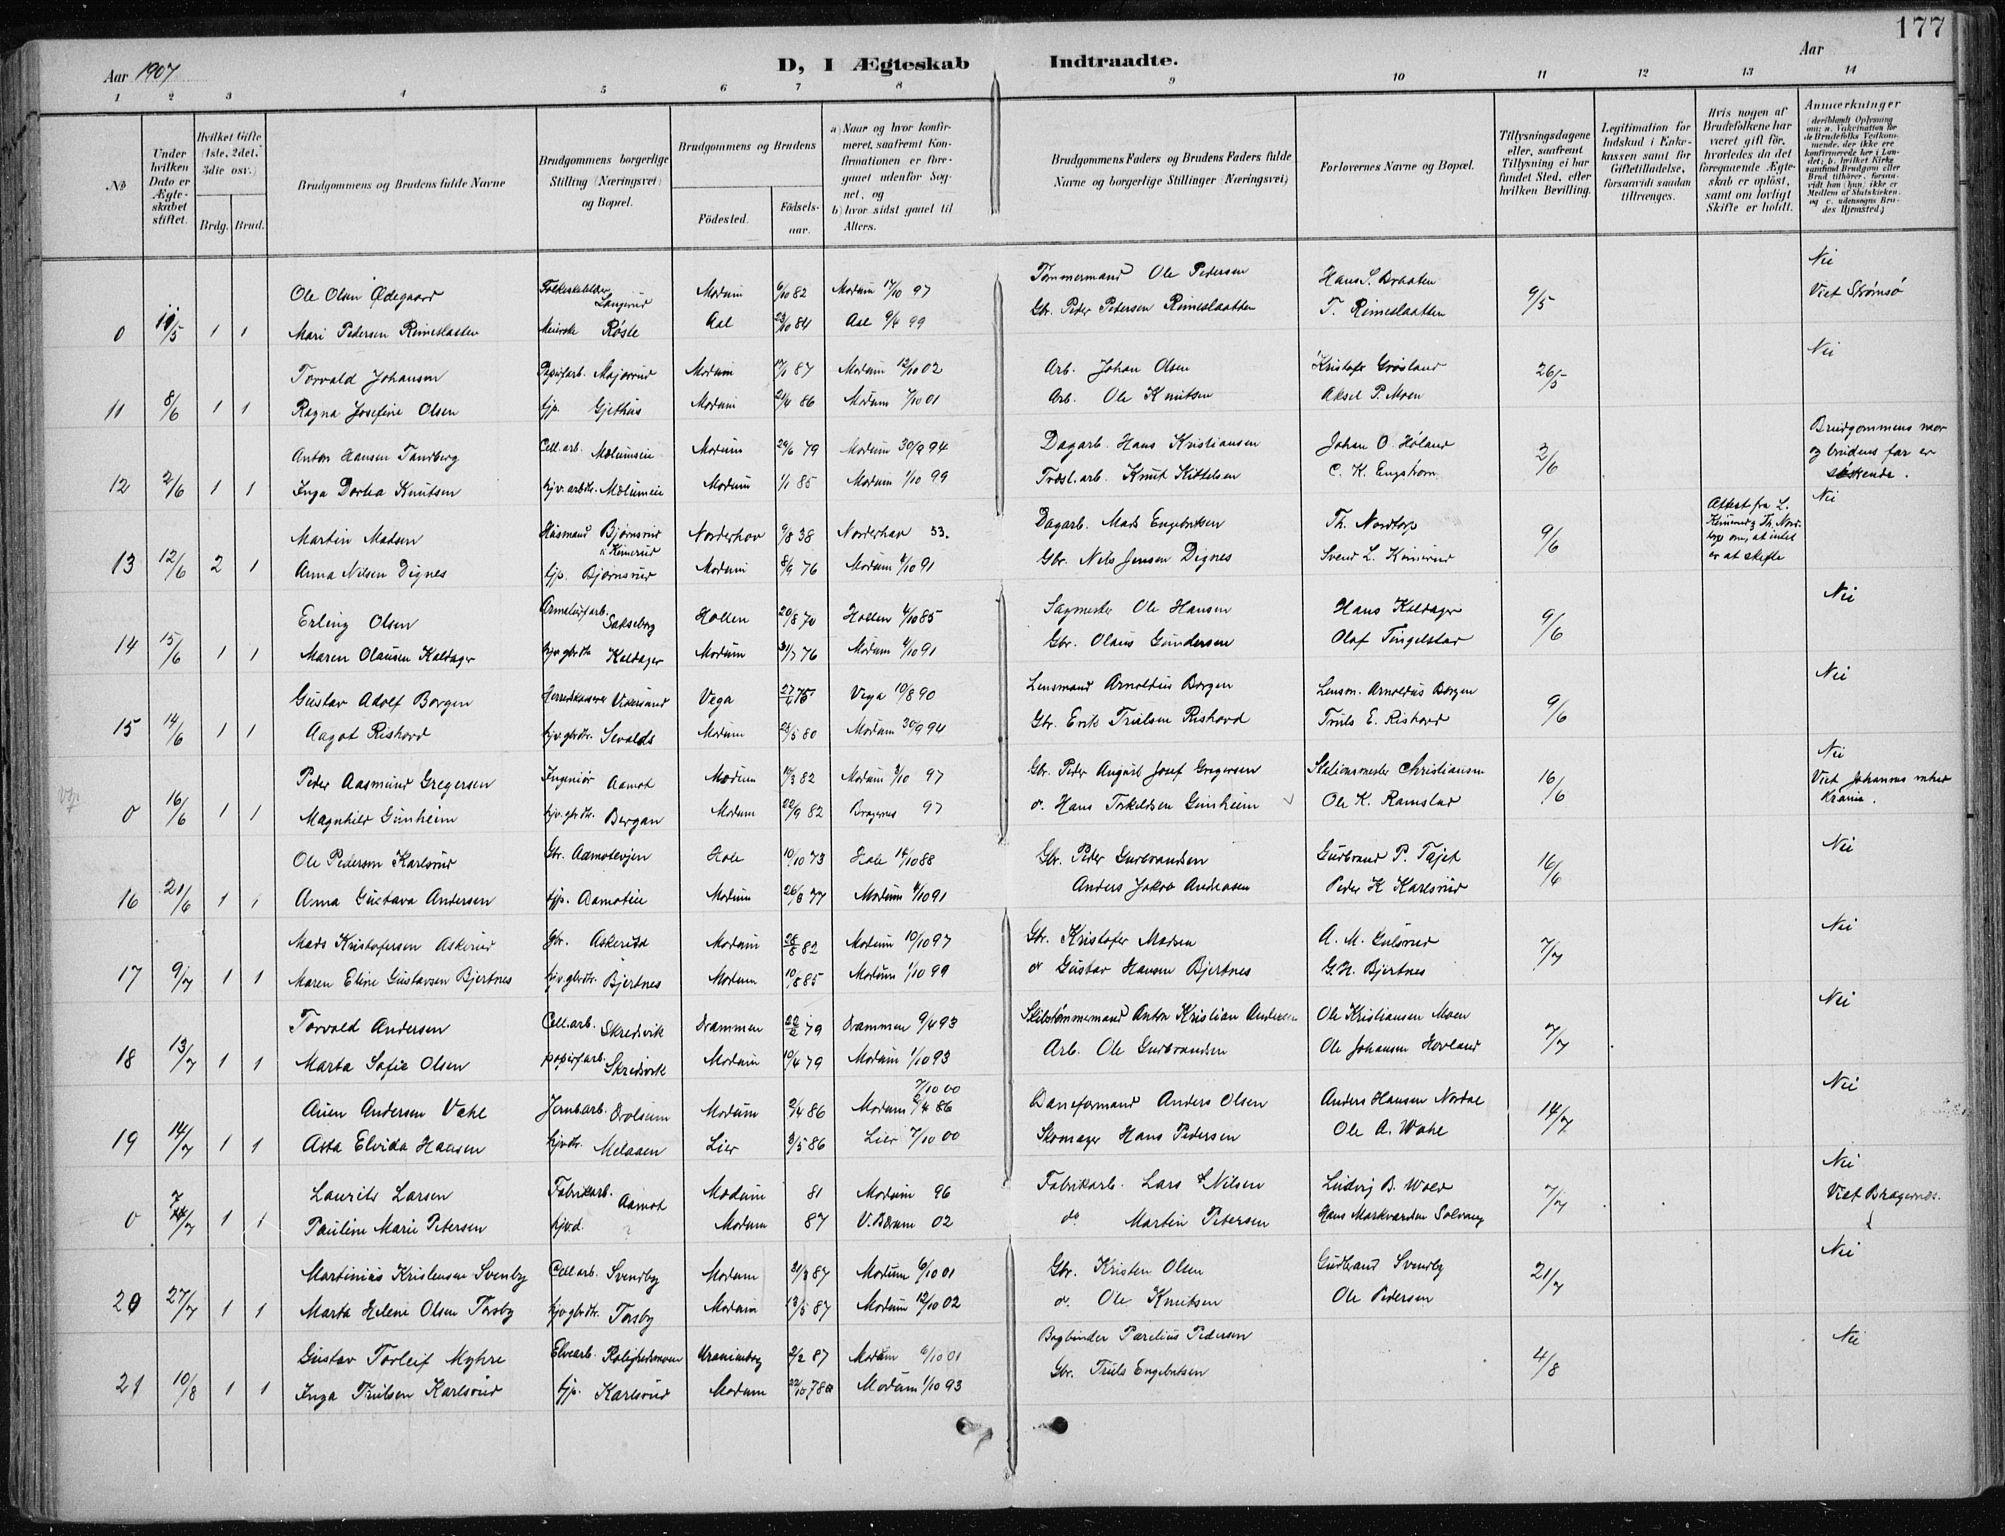 177
Aar 1907
D, I Ægteskab Indtraadte.
Aar
1 2 3 4 5 6 7 8 9 10 11 12 13 14
No
Under hvilken Dato er Ægteskabet stiftet.
Hvilket Gifte (1ste, 2det, 3die osv.)
Brdg. Brud.
Brudgommens og Brudens fulde Navne
Brudgommens borgerlige Stilling (Næringsvei) og Bopæl.
Brudgommens og Brudens
Fødested. Fødselsaar.
a) Naar og hvor konfirmeret, saafremt Konfirmationen er foregaaet udenfor Sognet, og
b) hvor sidst gaaet til Alters.
Brudgommens Faders og Brudens Faders fulde Navne og borgerlige Stillinger (Næringsvei)
Forlovernes Navne og Bopæl.
Tillysningsdagene eller, saafremt Tillysning ei har fundet Sted, efter hvilken Bevilling.
Legitimation for Indskud i Enkekassen samt for Giftetilladelse, forsaavidt saadan tiltrænges.
Hvis nogen af Brudefolkene har været gift før, hvorledes da det foregaaende Ægteskab er opløst, samt om lovligt Skifte er holdt.
Anmærkninger
Ole Olsen Ødegaard Modum 6/10 82 Modum 17/10 97 Tømmermand Ole Pedersen Hans S. Braaten 9/5 Nei
0 11/5 1 1 Mari Pedersen Rimeslaatten Røste Aal 23/10 84 Aal 9/4 99 Gbr. Peder Petersen Rimeslaatten T. Rimeslaatten Viet Strømsø
Torvald Johansen Papirfarb. Majorrud Modum 17/1 87 Modum 12/10 02 Arb. Johan Olsen Kristofer Grøsland 26/5 Nei
11 8/6 1 1 Ragna Josefine Olsen tjp. Gjethus Modum 2/4 86 Modum 7/10 01 Arb. Ole Knutsen Aksel P. Moen
Anton Hansen Tandberg Cell.arb. Melumeie Modum 29/6 79 Modum 30/9 94 Dagarb. Hans Kristiansen Johan O. Høland 2/6 Brudgommens mor
12 2/6 1 1 Inga Dortea Knutsen Melumeie Modum 1/1 85 Modum 1/10 99 Træsl.arb. Knut Kittelsen C. K. Engstrøm og brudens far er søskende.
Martin Madsen Husmand Bjørnsrud i Kimerud Norderhov 9/8 38 Norderhov 53. Dagarb. Mads Engebretsen Th. Nordtorp 9/6 Attest fra L. Kimerud & Th. Nordtorp om, at intet er at skifte Nei
13 12/6 2 1 Anna Nilsen Dignes tjp. Bjørnsrud Modum 8/9 76 Modum 4/10 91 Gbr. Nils Jensen Dignes Svend L. Kimerud
Erling Olsen Sakseborg Hollen 20/8 70 Hollen 4/10 85 Sagmester Ole Hansen Hans Kaldager 9/6 Nei
14 15/6 1 1 Maren Olausen Kaldager Kaldager Modum 31/7 76 Modum 4/10 91 Gbr. Olaus Gundersen Olaf Tingelstad
Gustav Adolf Borgen Herredskasserer Vikersund Vega 27/4 75 Vega 10/8 90 Lensmand Arnoldus Borgen Lensm. Arnoldus Borgen 9/6 Nei
15 14/6 1 1 Aagot Rishovd hjv.gbrdtr. Sevalds Modum 23/5 80 Modum 30/9 94 Gbr. Erik Trulsen Rishovd Truls E. Rishovd
Peder Aasmund Gregersen Ingeniør Aamot Modum 17/3 82 Modum 3/10 97 Gbr. Peder August Josef Gregersen Stationsmester Christiansen 16/6 Nei
0 16/6 1 1 Magnhild Gunheim hjv.gbrdtr. Bergan Modum 22/9 82 Bragernes 97 do. Hans Torkildsen Gunheim Ole K. Ramstad Viet Johannes mhed Krania.
Ole Pederson Karlsrud Gbr. Hole 10/10 73 Hole 14/10 88 Gbr. Peder Gudbrandsen Gudbrand P. Tajet 16/6 Nei
16 21/6 1 1 Anna Gustava Andersen tjp. Aamoteie Modum 26/8 77 Modum 4/10 91 Anders Jakob Andreasen Peder K Karlsrud
Mads Kristofersen Askerud Gbr. Askerud Modum 28/8 82 Modum 10/10 97 Gbr. Kristofer Madsen A. M. Gulsrud 7/7 Nei
17 9/7 1 1 Maren Eline Gustavsen Bjertnes hjv.gbrdtr. Bjertnes Modum 10/8 85 Modum 1/10 99 do Gustav Hansen Bjertnes G. H. Bjertnes
Torvald Andersen Cell.arb. Skredsvik Drammen 22/2 79 Drammen 9/4 93 Skibstømmermand Anton Kristian Andersen Ole Kristiansen Moen 7/7 Nei
18 13/7 1 1 Marta Sofie Olsen papirfarb. Skredsvik Modum 19/4 79 Modum 1/10 93 Arb. Ole Gudbrandsen Ole Johansen Hovland
Auen Andersen Vahl Jernbarb. Drolsum Modum 2/4 86 Modum 7/10 00 Baneformand Anders Olsen Anders Hansen Nordal 14/7 Nei
19 14/7 1 1 Asta Elvida Hansen hjv.dtr. Melaaen Lier 3/5 86 Lier 7/10 00 Skomager Hans Pedersen Ole A. Wahl
Laurits Larsen Fabrikarb. Aamot Modum 81 Modum 96 Fabrikarb. Lars Nilsen Ludvig B. Wold 7/7 Nei
0 7/7 1 1 Pauline Marie Petersen hjvd. Modum 87 V. Bærum 02 do Martin Petersen Hans Markvardsen Solvang Viet Bragernes.
Martinius Kristensen Svendby Cell.arb. Svendby Modum 21/3 87 Modum 6/10 01 Gbr. Kristen Olsen Gudbrand Svendby 21/7 Nei
20 27/7 1 1 Marta Helene Olsen Torsby hjv.gbrdtr. Torsby Modum 13/5 87 Modum 12/10 02 do. Ole Knutsen Ole Pedersen
Gustav Torleif Myhre Elvearb. Rolighedsmoen 2/2 87 Modum 6/10 01 Bogbinder Parelius Pedersen 4/8 Nei
21 10/8 1 1 Inga Trulsen Karlsrud tjp. Karlsrud Modum 22/10 78 Modum 1/10 93 Gbr. Truls Engebretsen